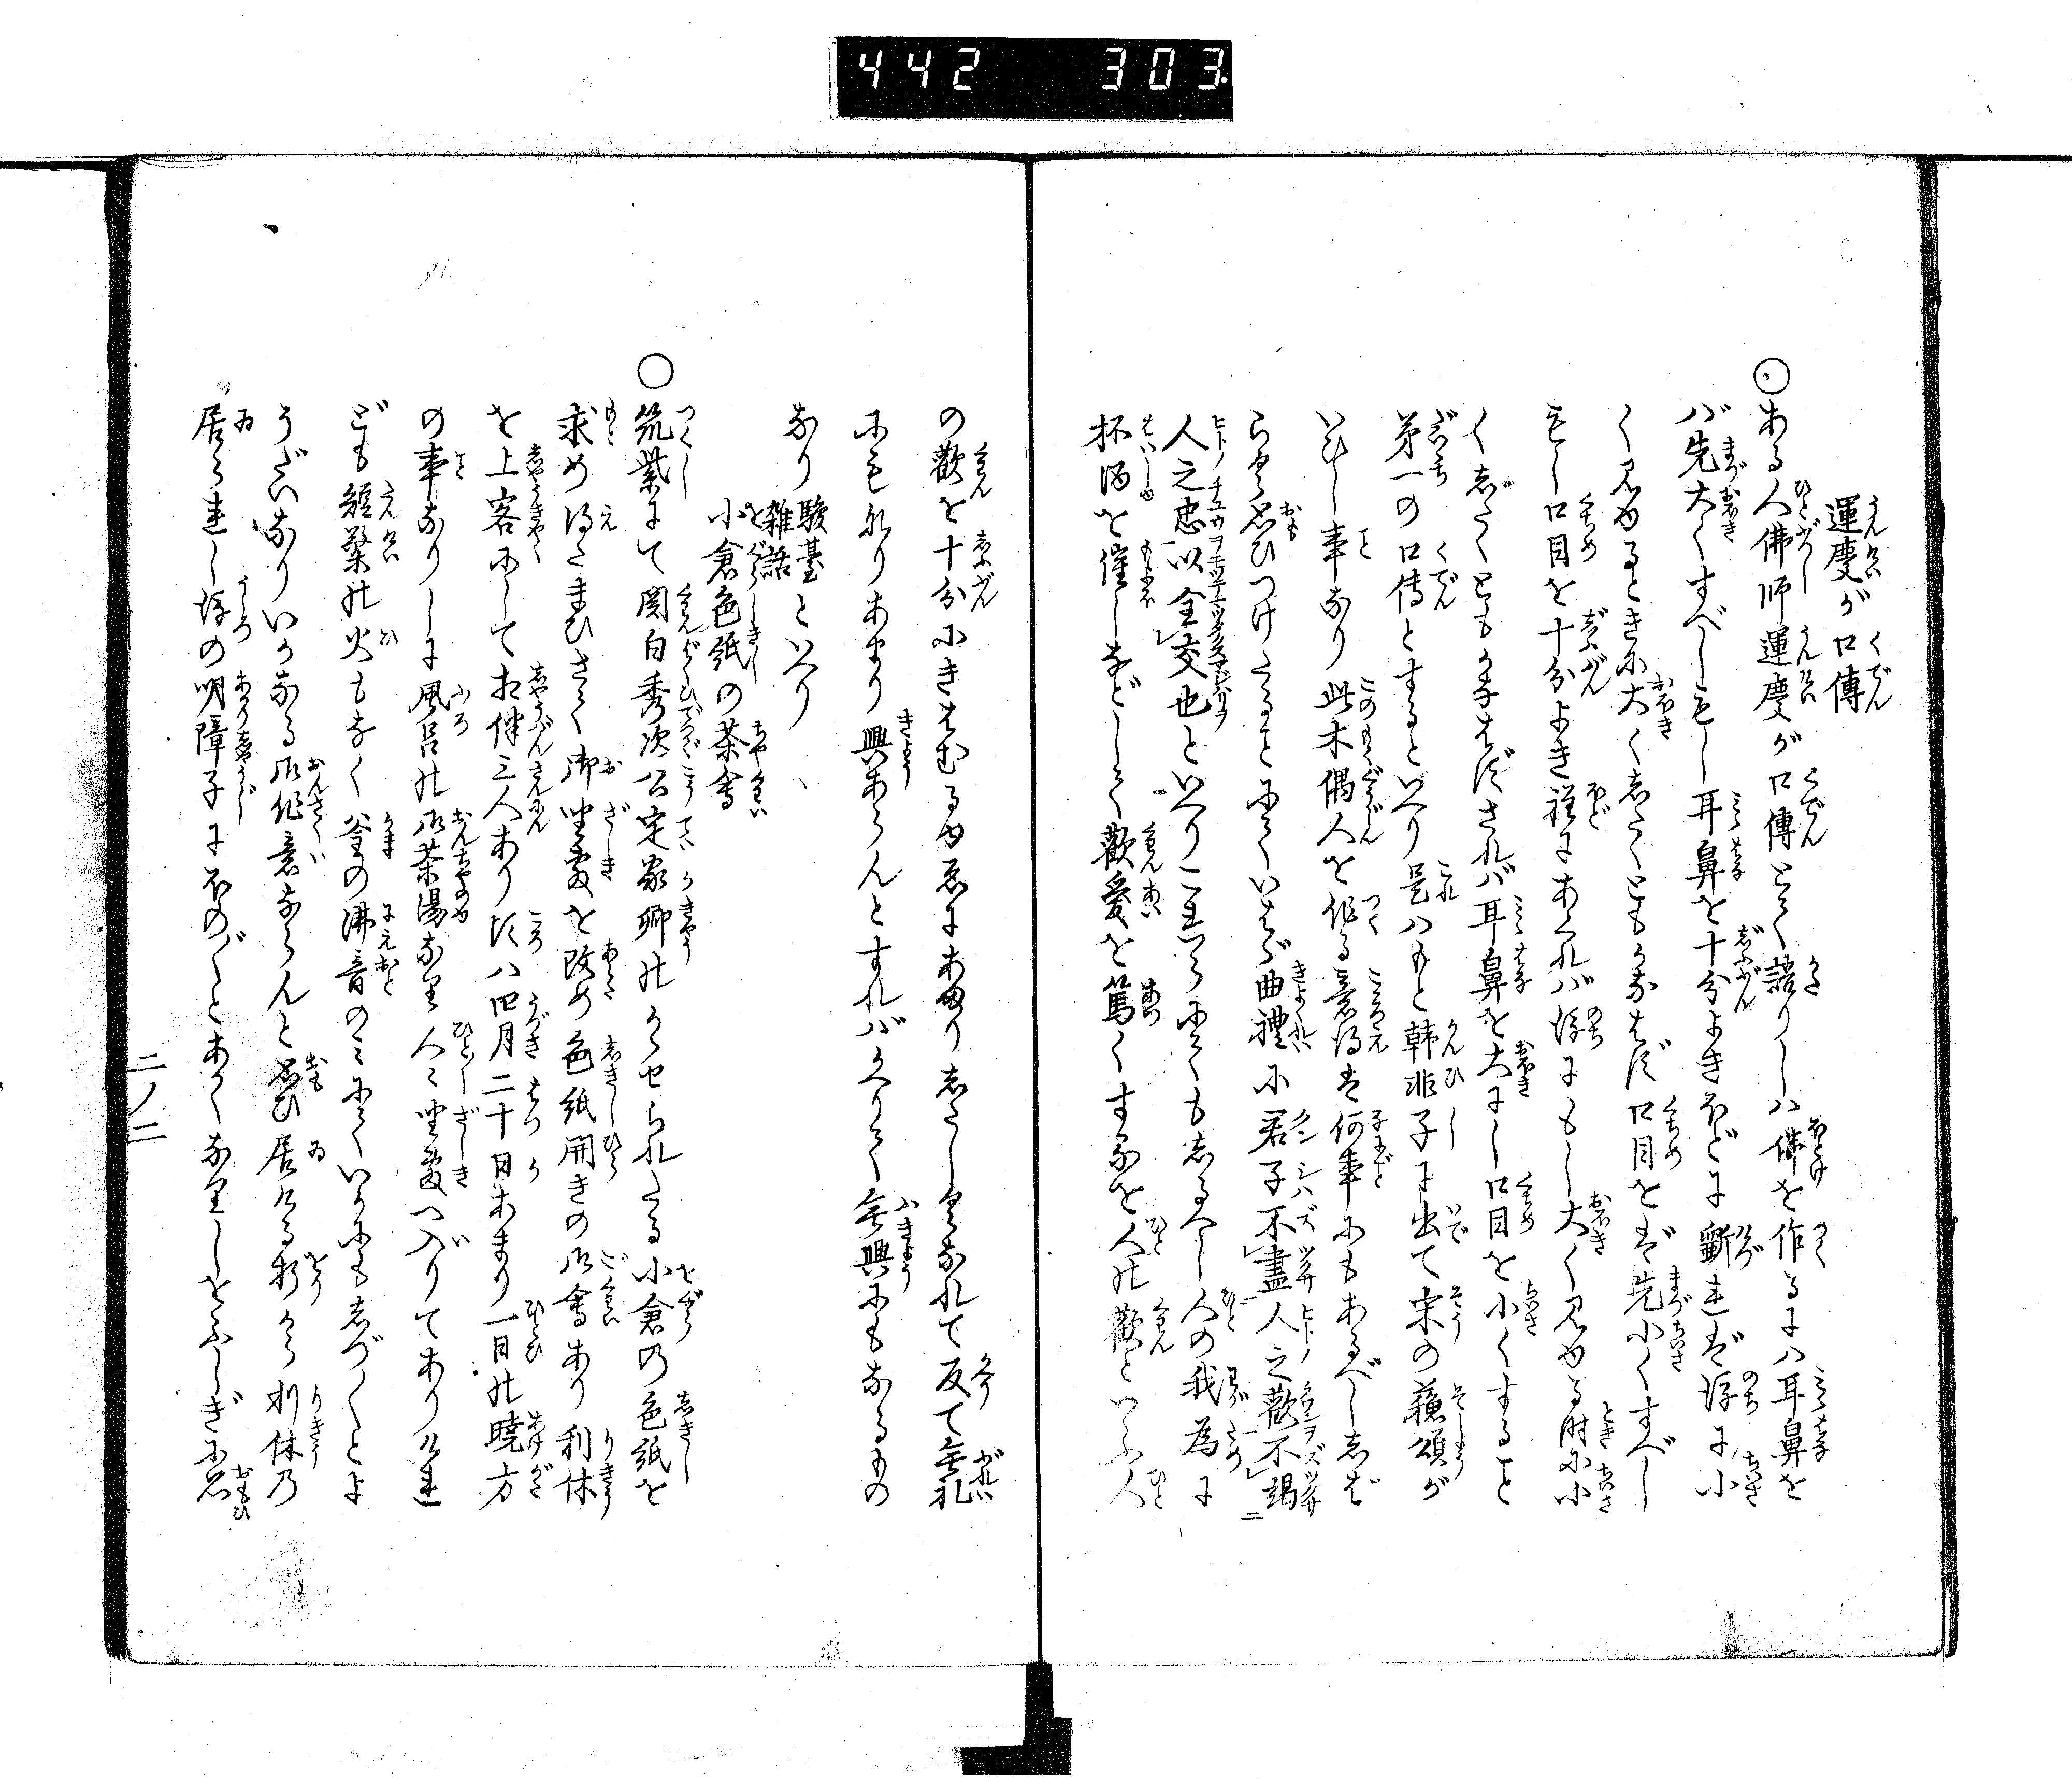 442 303.
運慶が口傳
○ある人佛師運慶が口傳とて語りしハ佛を作るにハ耳鼻を
バ先大くすべしもし耳鼻を十分よきほどに斷れば後に小
く見ゆるとき小大くしたくともかなはず口目をば先小くすべし
もし口目を十分よき程にあくれバ後にもし大く見ゆる時に小
くしたくともかなはずされバ耳鼻を大にし口目を小くすること
第一の口傳とするといへり是ハもと韓非子に出て宋の蘓頌が
いひし事なり此木偶人を作る意得は何事にもあるべししば
らく思ひつけたることにていはゞ曲禮に君子不盡人之歡不竭
人之忠以全交也といへりこれらにても志るべし人の我為に
杯酒を催しなどして歡愛を篤くするを人の歡といふ人
の歡を十分にきはむるゆゑにあまりしたしくなれて反て無礼
にもなりあまり興あらんとすればかへりて無興にもなるもの
なり駿臺雑話といへり
小倉色紙の茶會
○筑紫にて関白秀次公定家卿のかゝせられたる小倉の色紙を
求め得たまひさて御坐敷を改め色紙開きの御會あり利休
を上客にして相伴三人あり頃ハ四月二十日あまり一日の曉方
の事なりしに風呂の御茶湯なり人々坐敷へ入りてありけれ
ども短檠の火もなく釡の沸音のみにていかにもしづ〳〵とよ
うだいなりいかなる御作意ならんと思ひ居ける折から利休の
居られし後の明障子にほの〴〵とあかくなりしをふしぎに思
二ノ二